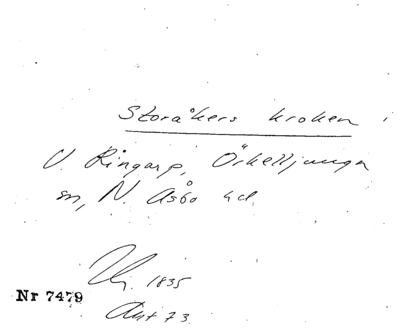 Storåkers kroken
V. Ringarp, Örkelljunga
sn, N. Åsbo hd
1835
Nr 7479
Akt 73